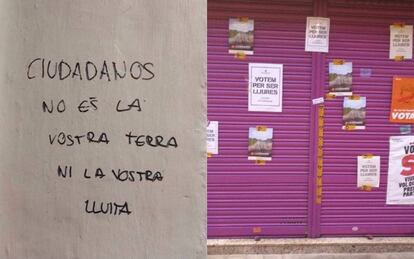 CIUDADANOS
NO ÉS LA
VOSTRA TERRA
NI LA VOSTRA
LLUITA
VOTEM
PER SER
LLIURES
VOTEM
PER SER
LLIURES
VOTEM
PER SER
LLIURES
VOTEM
PER SER
LLIURES
VOTA